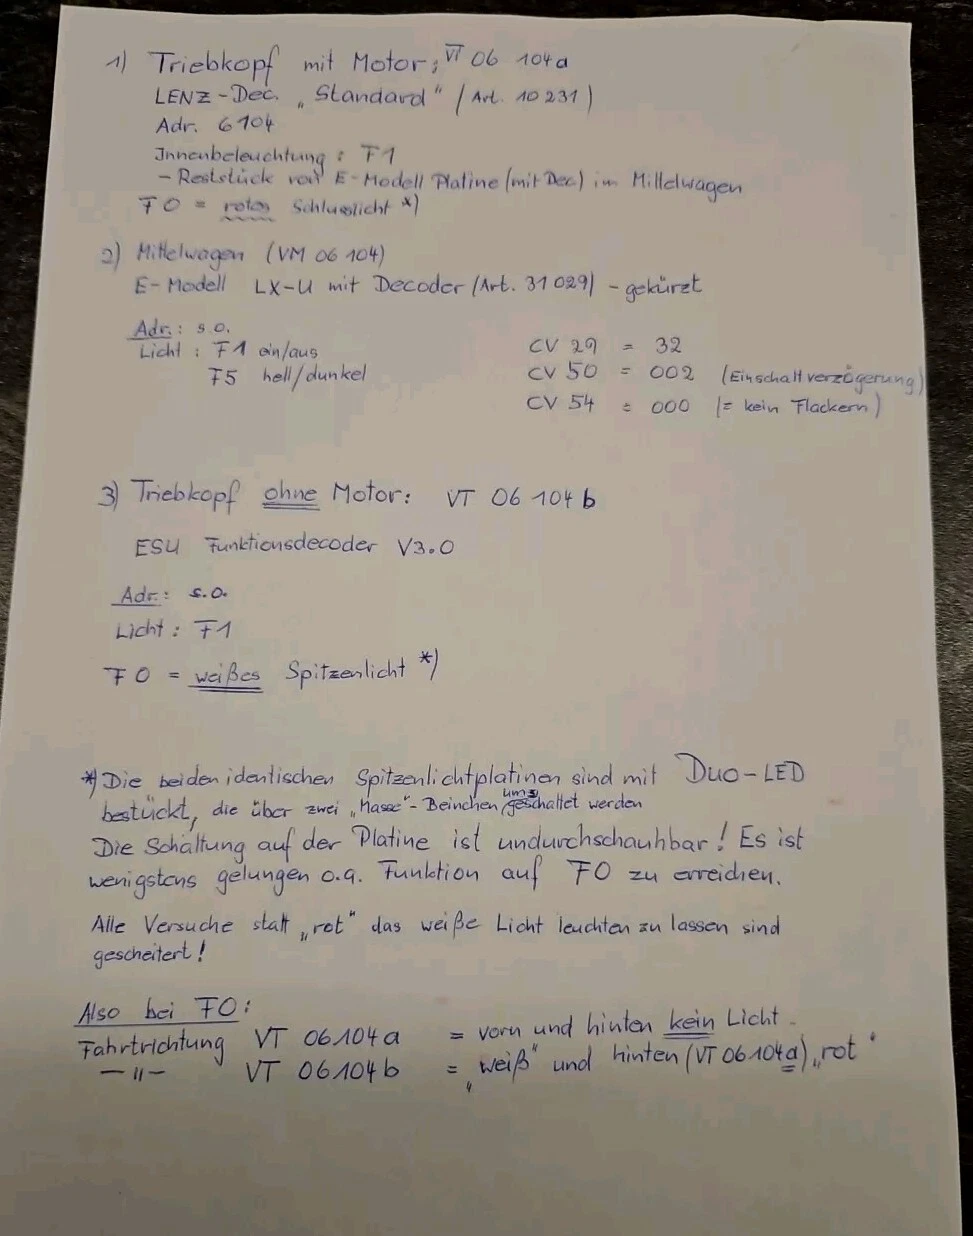 1) Triebkopf mit Motor; VT 06 104a
LENZ-Dec. „Standard" (Art. 10231)
Adr. 6104
Innenbeleuchtung: F1
- Reststück von E-Modell Platine (mit Dec) im Mittelwagen
F0 = rotes Schlusslicht *)
2) Mittelwagen (VM 06 104)
E-Modell LX-U mit Decoder (Art. 31029) - gekürzt
Adr.: s.o.
Licht: F1 ein/aus
F5 hell/dunkel
CV 29 = 32
CV 50 = 002 (Einschaltverzögerung)
CV 54 = 000 (= kein Flackern)
3) Triebkopf ohne Motor: VT 06 104 b
ESU Funktionsdecoder V3.0
Adr.: s.o.
Licht: F1
F0 = weißes Spitzenlicht *)
*) Die beiden identischen Spitzenlichtplatinen sind mit Duo-LED
bestückt, die über zwei „Masse"-Beinchen umgeschaltet werden
Die Schaltung auf der Platine ist undurchschauhbar! Es ist
wenigstens gelungen o.g. Funktion auf F0 zu erreichen.
Alle Versuche statt „rot" das weiße Licht leuchten zu lassen sind
gescheitert!
Also bei F0:
Fahrtrichtung VT 06104a = vorn und hinten kein Licht.
—"— VT 06104b = „weiß" und hinten (VT 06104a) „rot"